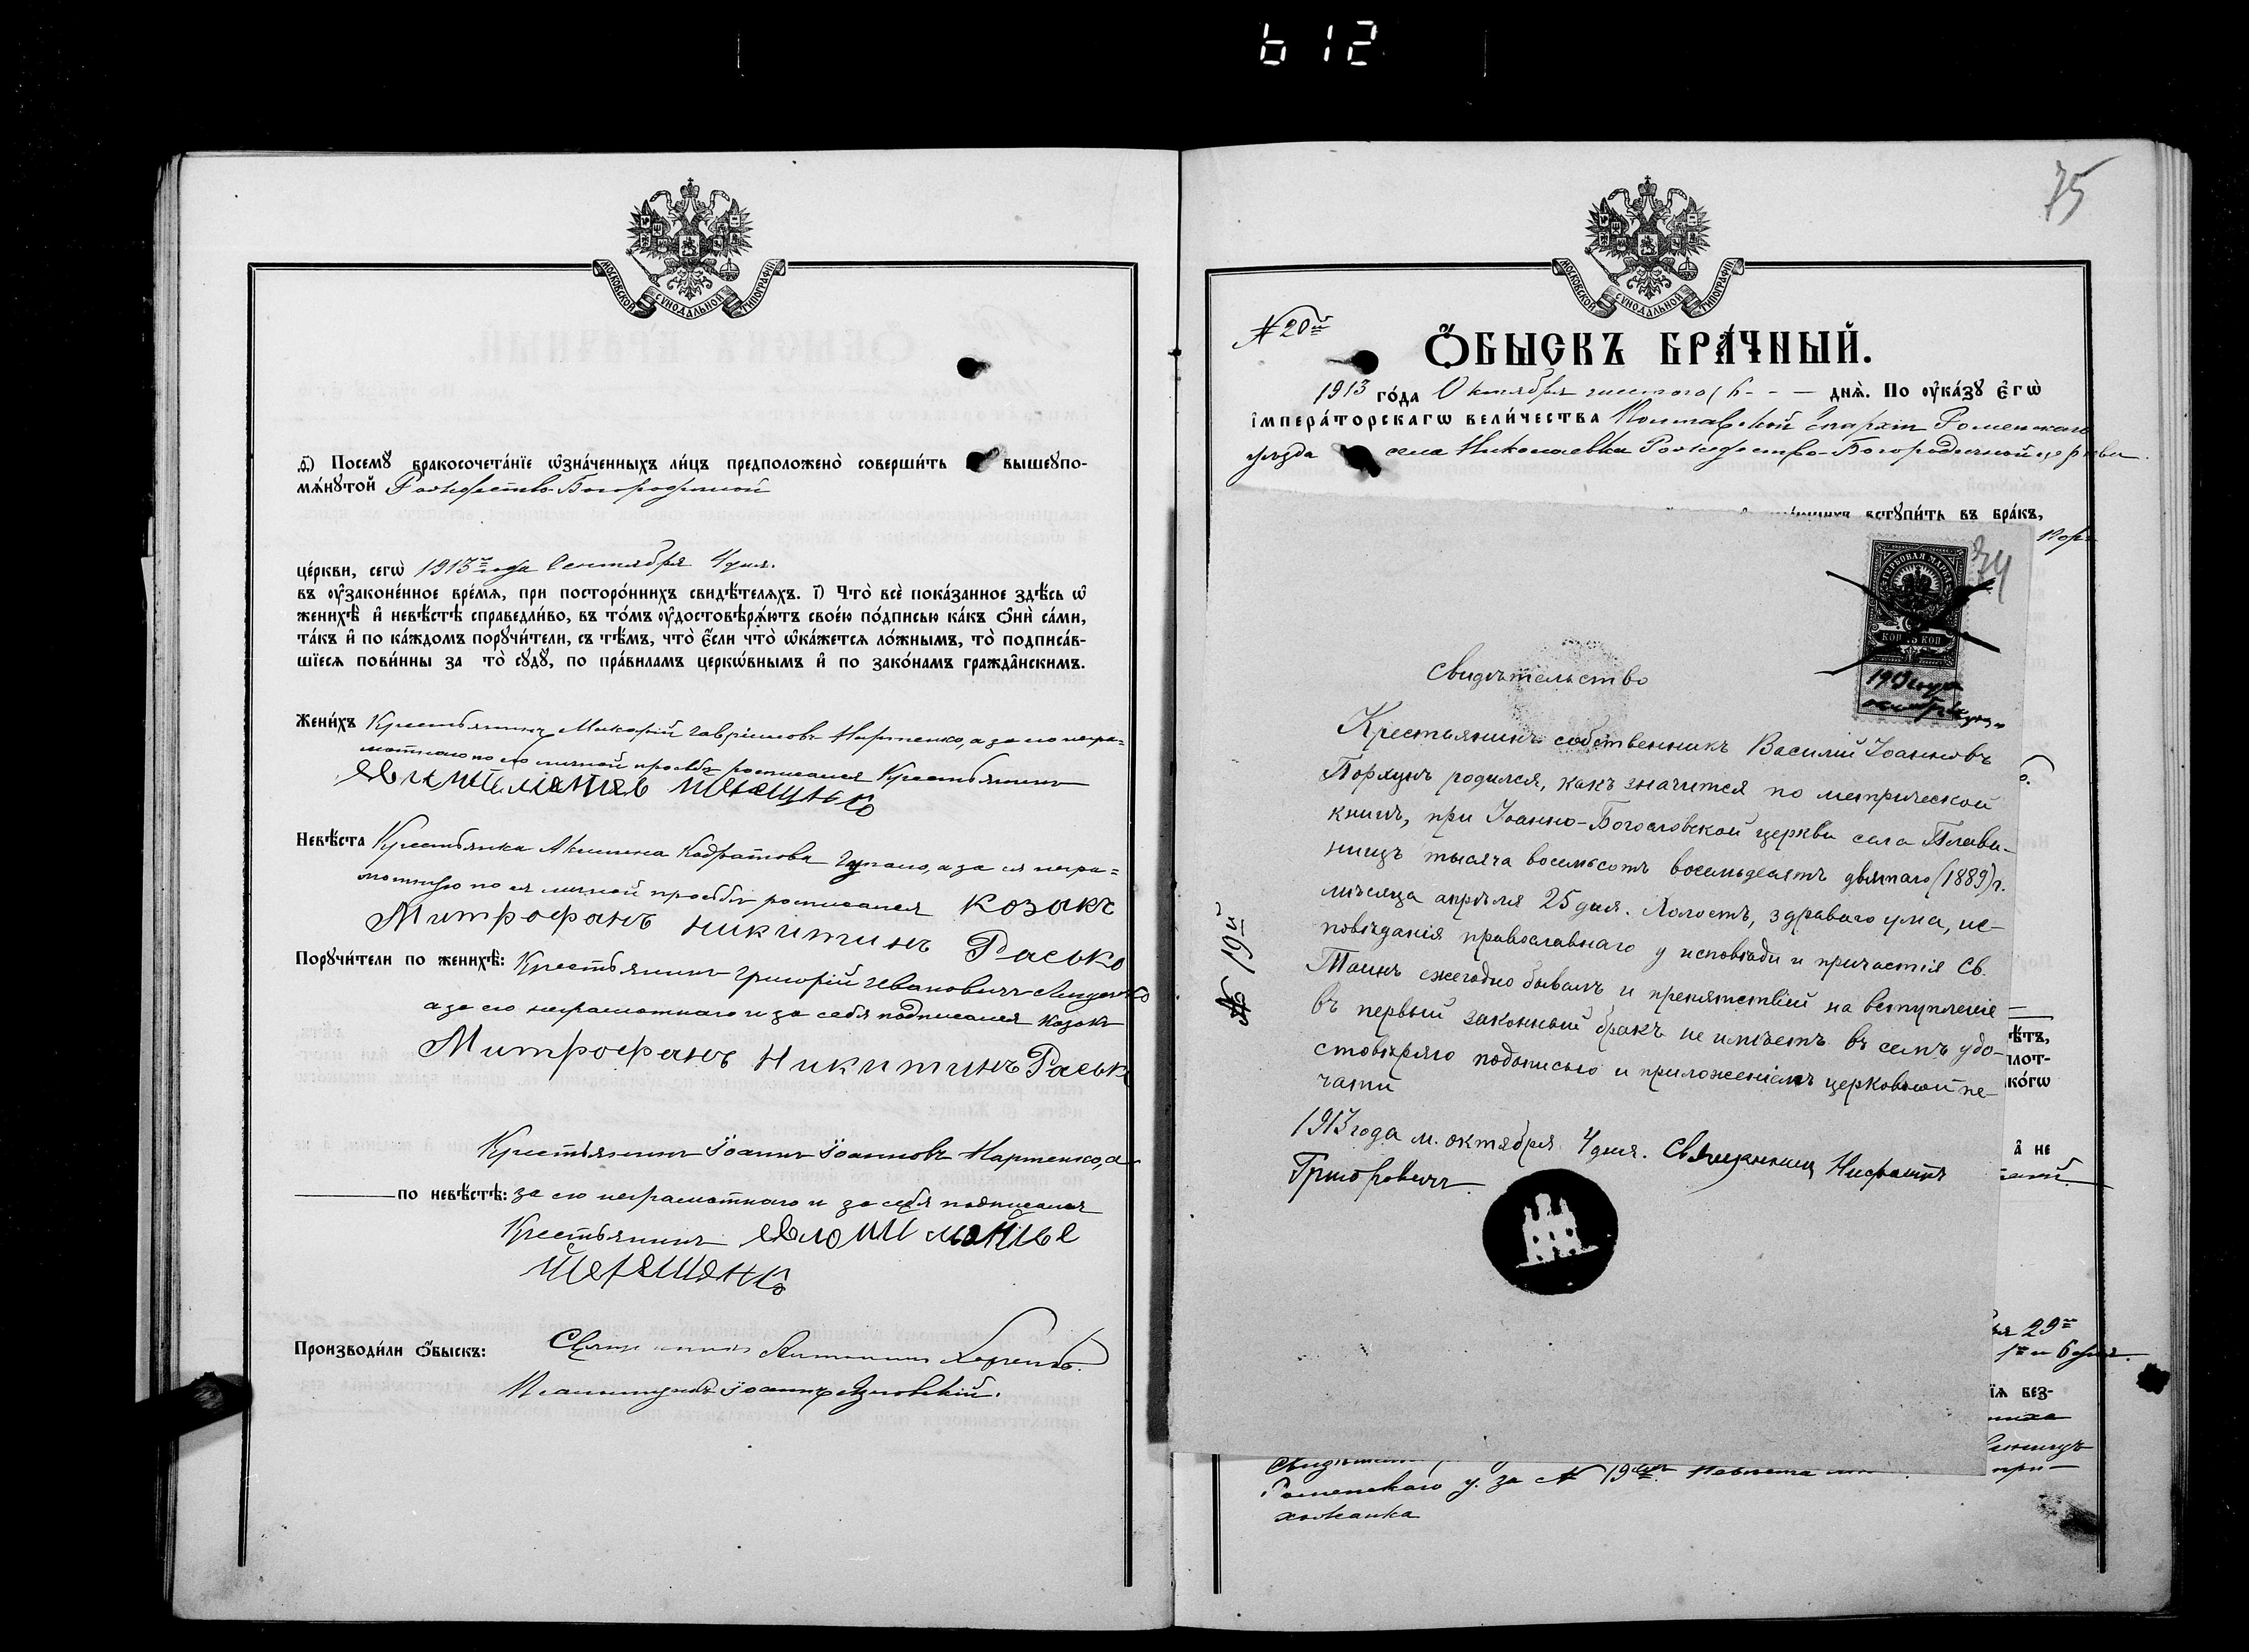 612
МОСКОВСКОЙ СУНОДАЛЬНОЙ ТИПОГРАФІИ
д҃і) Посемꙋ̀ бракосочета́нїе ѡ҆зна́ченныхъ ли́цъ предположенѡ̀ соверши́ть вышеꙋпо-
мѧ́нꙋтой Рождество-Богородичной
це́ркви, сегѡ̀ 1913го года Сентября 4 дня.
въ ѹ҆законе́нное вре́мѧ, при посторо́ннихъ свидѣ́телѧхъ. і҃) Что̀ всѐ пока́занное здѣ́сь ѡ҆
женихѣ̀ и҆ невѣ́стѣ справедли́во, въ то́мъ ѹ҆достовѣрѧ́ютъ свое́ю по́дписью ка́къ ѻ҆нѝ са́ми,
та́къ и҆ по ка́ждомъ порꙋчи́тели, съ тѣ́мъ, что̀ є҆́сли что̀ ѡ҆ка́жетсѧ ло́жнымъ, то̀ подписа́в-
шїесѧ пови́нны за то̀ сꙋдꙋ̀, по пра́виламъ церко́внымъ и҆ по зако́намъ гражда̑нскимъ.
Жени́хъ Крестьянинъ Макарій Гавріиловъ Нартенко, а за его негра=
мотнаго по его личной просьбѣ росписался Крестьянинъ
Невѣ́ста Крестьянка Акилина Кодратова а за ея негра=
мотную по ея личной просьбѣ росписался козакъ
Митрофанъ Никитинъ Расько
Порꙋчи́тели по женихѣ̀: Крестьянинъ Григорій Ивановичъ
а за его неграмотнаго и за себя подписался козакъ
Митрофанъ Никитинъ Расько
Крестьянинъ Іоаннъ Іоанновъ Нартенко, а
по невѣ́стѣ: за его неграмотнаго и за себя подписался
Крестьянинъ
Производи́ли ѻ҆́быскъ: Священникъ
Псаломщикъ Іоаннъ
75
МОСКОВСКОЙ СУНОДАЛЬНОЙ ТИПОГРАФІИ
№ 20й
Ѻ҆́БЫСКЪ БРА́ЧНЫЙ.
1913 го́да Октября шестого (6 - - — днѧ̀. По ѹ҆ка́зꙋ є҆гѡ̀
і҆мпера́торскагѡ вели́чества Полтавской Епархіи Роменскаго
уѣзда села Николаевки Рождество-Богородичной церкви.
вступи́ть въ бра́къ,
74
ГЕРБОВАЯ МАРКА
КОП 75 КОП
1913 года
октября
Свидѣтельство
Крестьянинъ собственникъ Василій Іоанновъ
Порхунъ родился, какъ значится по метрической
книгѣ, при Іоанно-Богословской церкви села Плави-
нищъ тысяча восемьсотъ восемьдесятъ девятаго (1889) г.
мѣсяца апрѣля 25 дня. Холостъ, здраваго ума, ис-
повѣданія православнаго у исповѣди и причастія Св.
Таинъ ежегодно бывалъ и препятствій на вступленіе
въ первый законный бракъ не имѣетъ въ семъ удо-
стовѣряю подписью и приложеніемъ церковной пе-
чати
1913 года м. октября 4 дня. Священникъ
Григоровичъ.
№ 19й
ѣтъ,
лот-
ко́гѡ
а҆ не
29го
1го и 6 дня.
їѧ без-
ниха
Роменскаго у. за № 19 Невѣста при-
хожанка